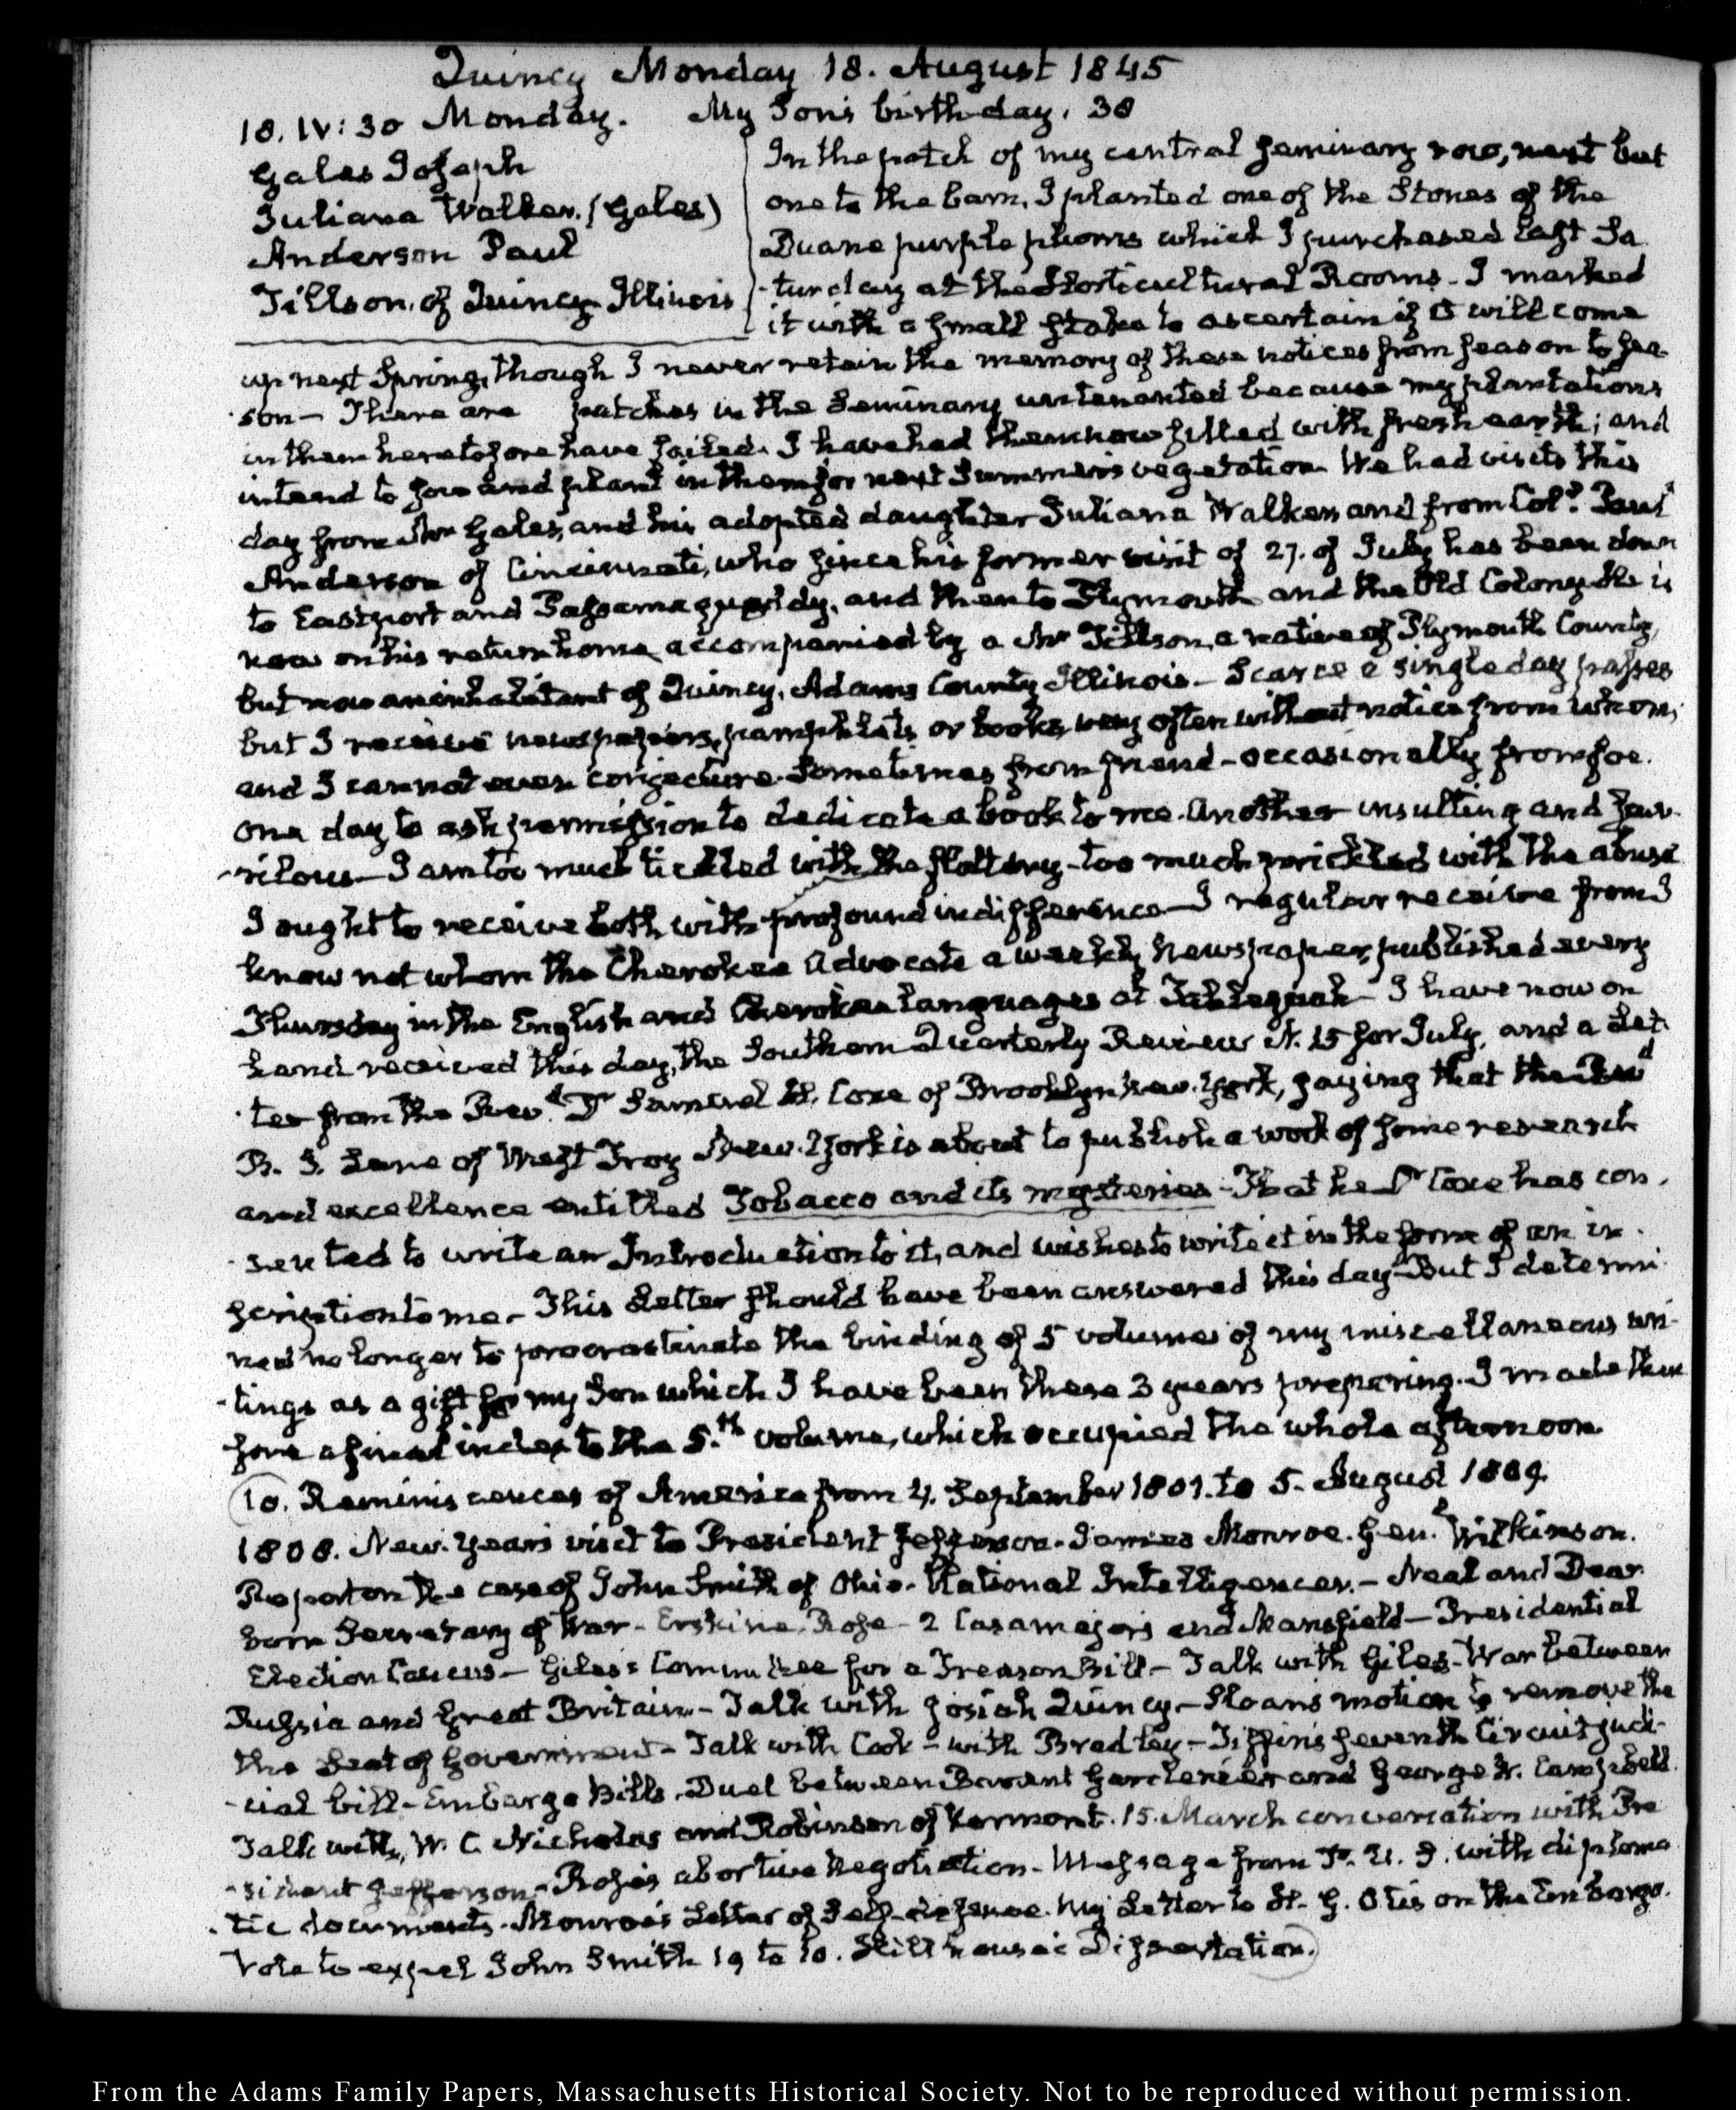 Quincy Monday 18. August 1845
18. IV:30 Monday. My Son's birth-day. 38
Gales Joseph
Juliana Walker. (Gales)
Anderson Paul
Tillson. of Quincy Illinois
In the patch of my central Seminary row, next but
one to the barn, I planted one of the Stones of the
Duane purple plums which I purchased last Sa
-turday at the Horticultural Rooms. I marked
it with a small stake to ascertain if it will come
up next Spring, though I never retain the memory of these notices from season to sea-
son — There are patches in the Seminary untenanted because my plantations
in them heretofore have failed. I have had them now filled with fresh earth; and
intend to sow and plant in them for next Summer's vegetation. We had visits this
day from Mr Gales, and his adopted daughter Juliana Walker, and from Coll. Paul
Anderson of Cincinnati, who since his former visit of 27. of July has been down
to Eastport and Passamaquoddy, and then to Plymouth and the Old Colony. He is
now on his return home accompanied by a Mr Tillson, a native of Plymouth County,
but now an inhabitant of Quincy, Adams County Illinois — Scarce a single day passes
but I receive newspapers, pamphlets or books, very often without notice from whom,
and I cannot even conjecture. Sometimes from friend — occasionally from foe.
one day to ask permission to dedicate a book to me. Another insulting and scur-
-rilous — I am too much tickled with the flattery — too much prickled with the abuse
I ought to receive both with profound indifference — I regular receive from I
know not whom the Cherokee Advocate a weekly Newspaper, published every
Thursday in the English and Cherokee languages at Tahlequah — I have now on
hand received this day, the Southern Quarterly Review N. 15 for July, and a let-
-ter from the Revd. Dr Samuel H. Coxe of Brooklyn New-York, saying that the Revd
B. I. Lane of West Troy New-York is about to publish a work of some research
and excellence entitled Tobacco and its mysteries — That he Dr Coxe has con-
-sented to write an Introduction to it, and wishes to write it in the form of an in-
scription to me — This Letter should have been answered this day — But I determi-
ned no longer to procrastinate the binding of 5 volumes of my miscellaneous wri-
-tings as a gift for my Son which I have been these 3 years preparing. I made there
fore a final index to the 5.th volume, which occupied the whole afternoon.
(10. Reminiscences of America from 4. September 1801. to 5. August 1809.
1808. New-Year's visit to President Jefferson. James Monroe. Genl. Wilkinson.
Report on the case of John Smith of Ohio. National Intelligencer. — Neal and Dear
born Secretary of War — Erskine, Rose — 2 Casamajors and Mansfield — Presidential
Election Caucus — Giles's Committee for a Treason Bill — Talk with Giles — War between
Russia and Great Britain — Talk with Josiah Quincy — Sloan's motion to remove the
the Seat of Government — Talk with Cook — with Bradley — Tiffin's seventh Circuit judi-
-cial bill — Embargo Bills. Duel between Barent Gardenier and George W. Campbell.
Talk with, W. C. Nicholas and Robinson of Vermont. 15. March conversation with Pre
-sident Jefferson — Rose's abortive Negotiation — Message from P. U. S. with diploma
-tic documents. Monroe's Letter of Self-defence. My Letter to H. G. Otis on the Embargo.
Vote to expel John Smith 19 to 10. Hillhouse's Dissertation.)
From the Adams Family Papers, Massachusetts Historical Society. Not to be reproduced without permission.